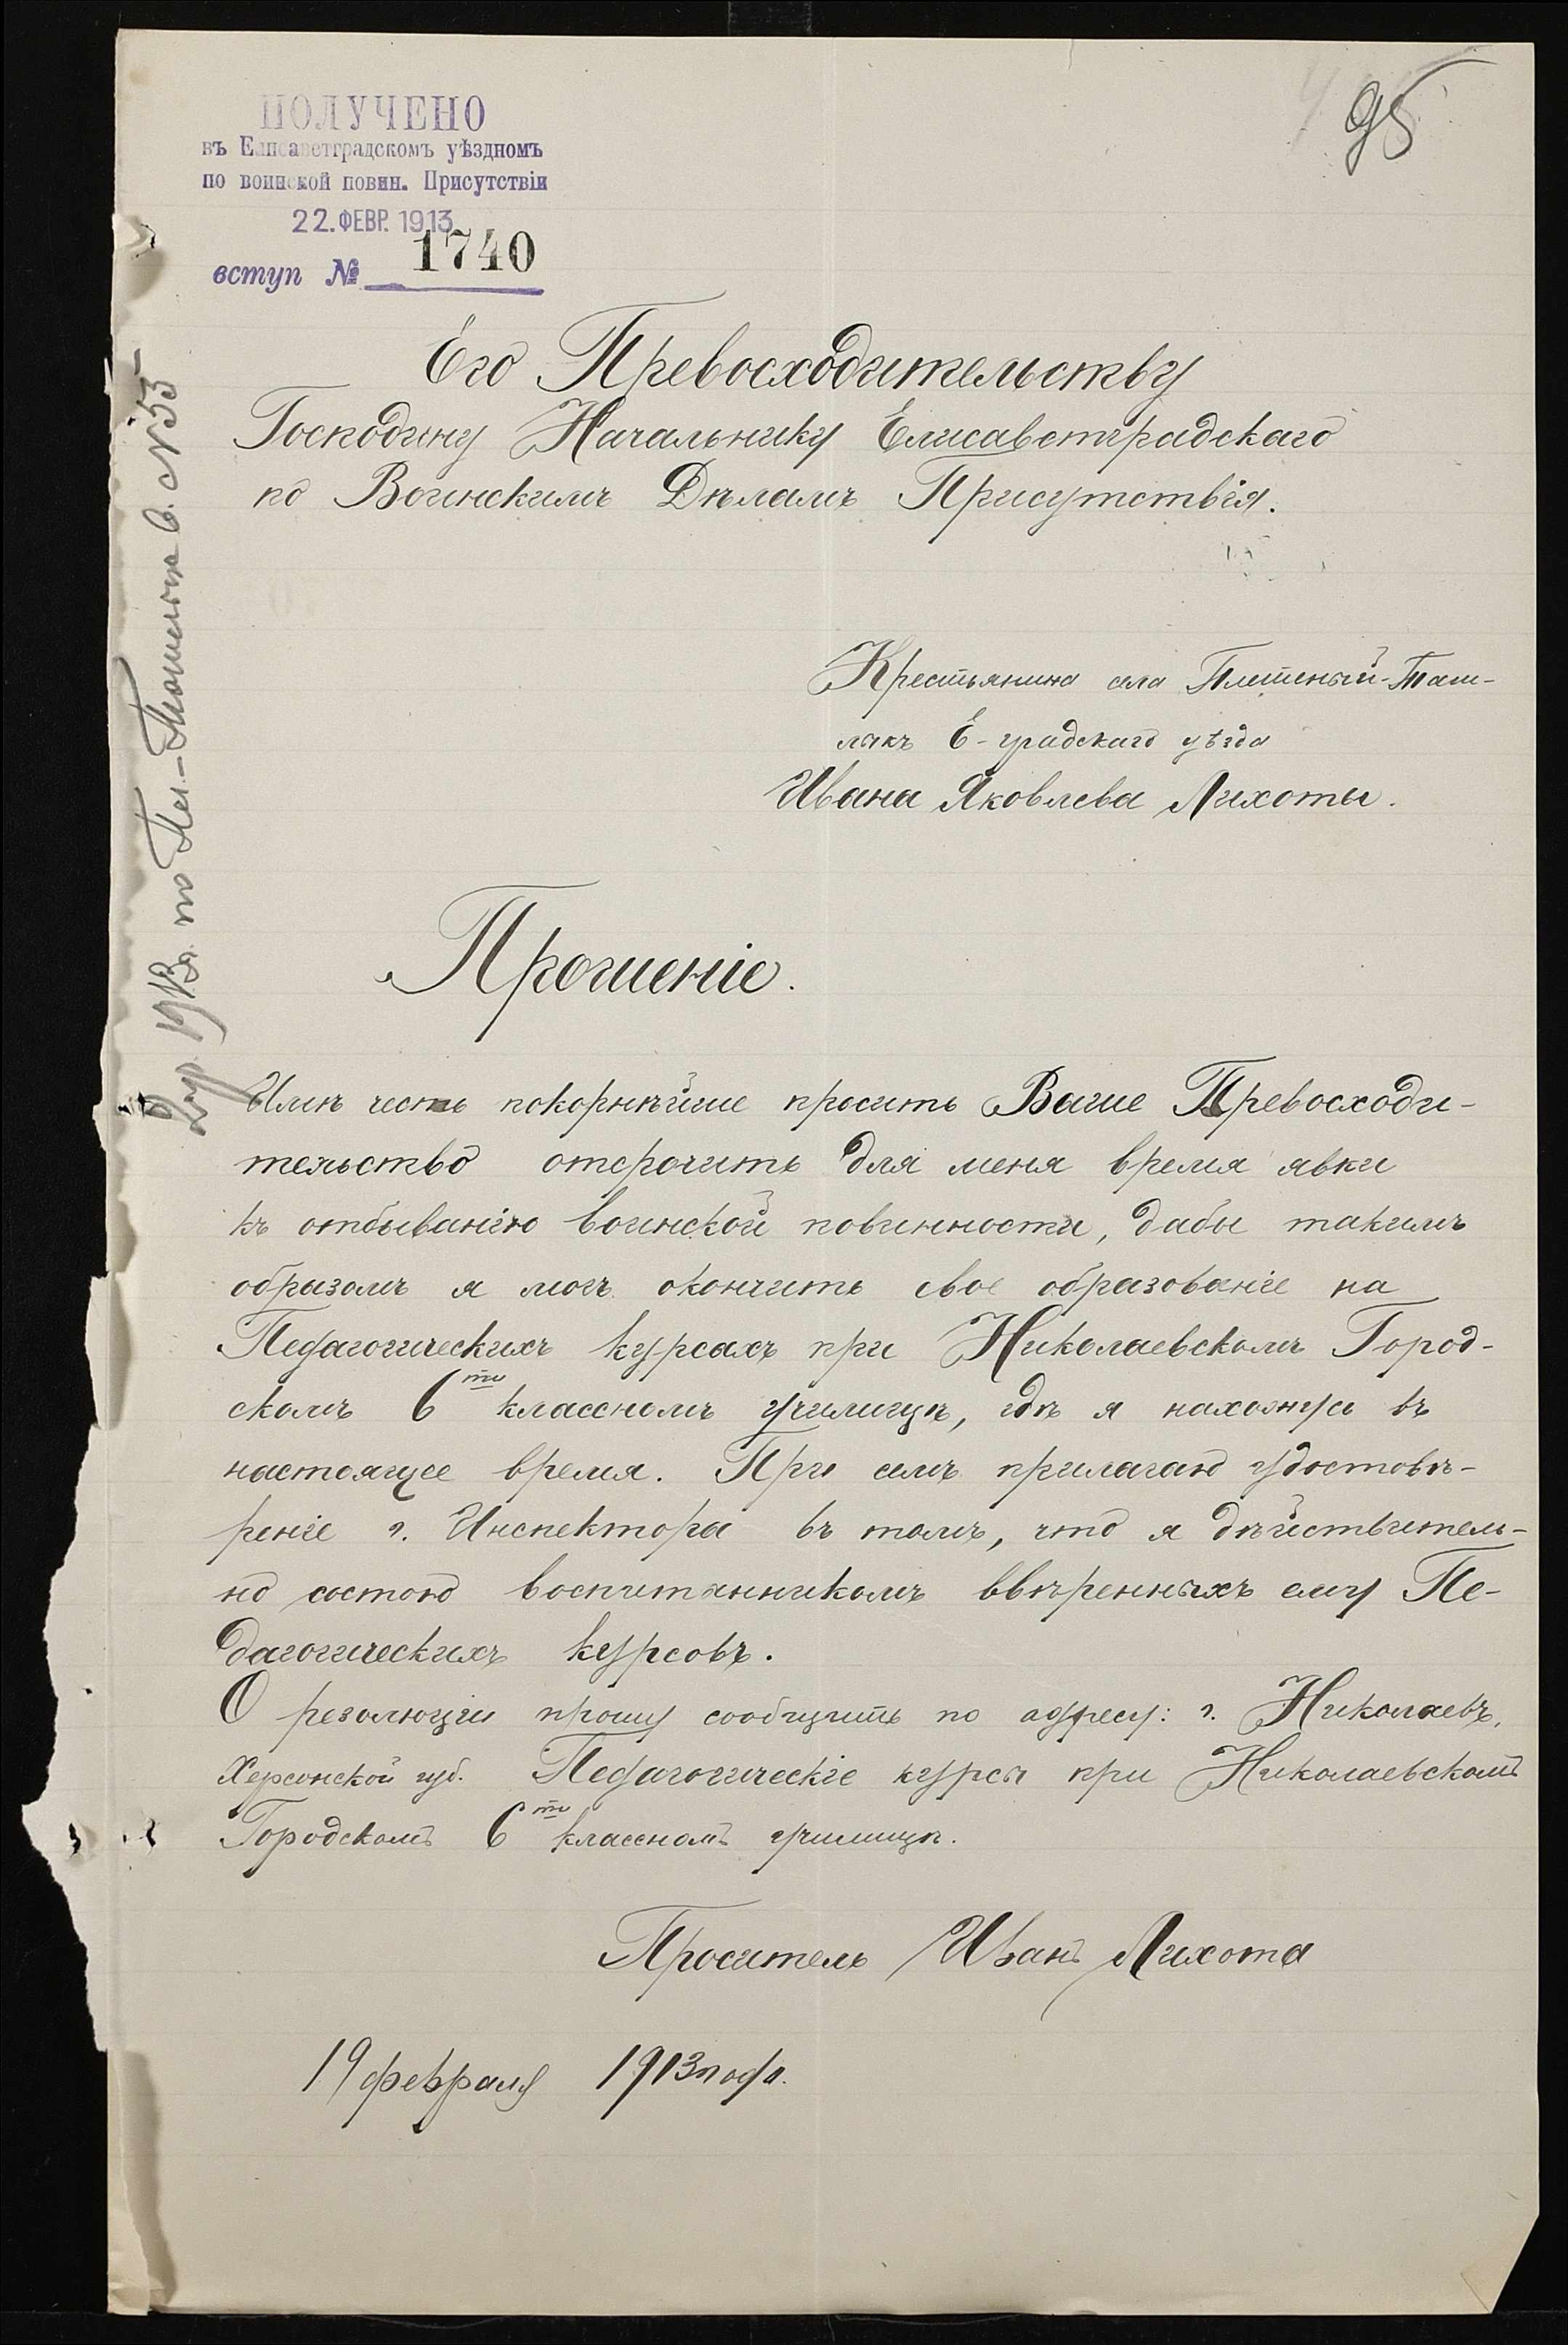 ПОЛУЧЕНО
въ Елисаветградскомъ уѣздномъ
по воинской повин. Присутствіи
22. ФЕВР. 1913
1740
вступ №
95
Его Превосходительству
Господину Начальнику Елисаветградскаго
по Воинскимъ Дѣламъ Присутствія.
Крестьянина села Плетеный-Таш-
лыкъ Е-градскаго уѣзда
Ивана Яковлева Лихоты.
Прошеніе.
Имѣю честь покорнѣйше просить Ваше Превосходи-
тельство отсрочить для меня время явки
къ отбыванію воинской повинности, дабы такимъ
образомъ я могъ окончить свое образованіе на
Педагогическихъ курсахъ при Николаевскомъ Город-
скомъ 6ти классномъ училищѣ, гдѣ я нахожусь въ
настоящее время. При семъ прилагаю удостовѣ-
реніе г. Инспектора въ томъ, что я дѣйствитель-
но состою воспитанникомъ ввѣренныхъ ему Пе-
дагогическихъ курсовъ.
О резолюціи прошу сообщить по адресу: г. Николаевъ,
Херсонской губ. Педагогическіе курсы при Николаевскомъ
Городскомъ 6ти классномъ училищѣ.
Проситель Иванъ Лихота
19 февраля 1913 года.
1913 г. по Пл.-Ташлыкъ В. №55